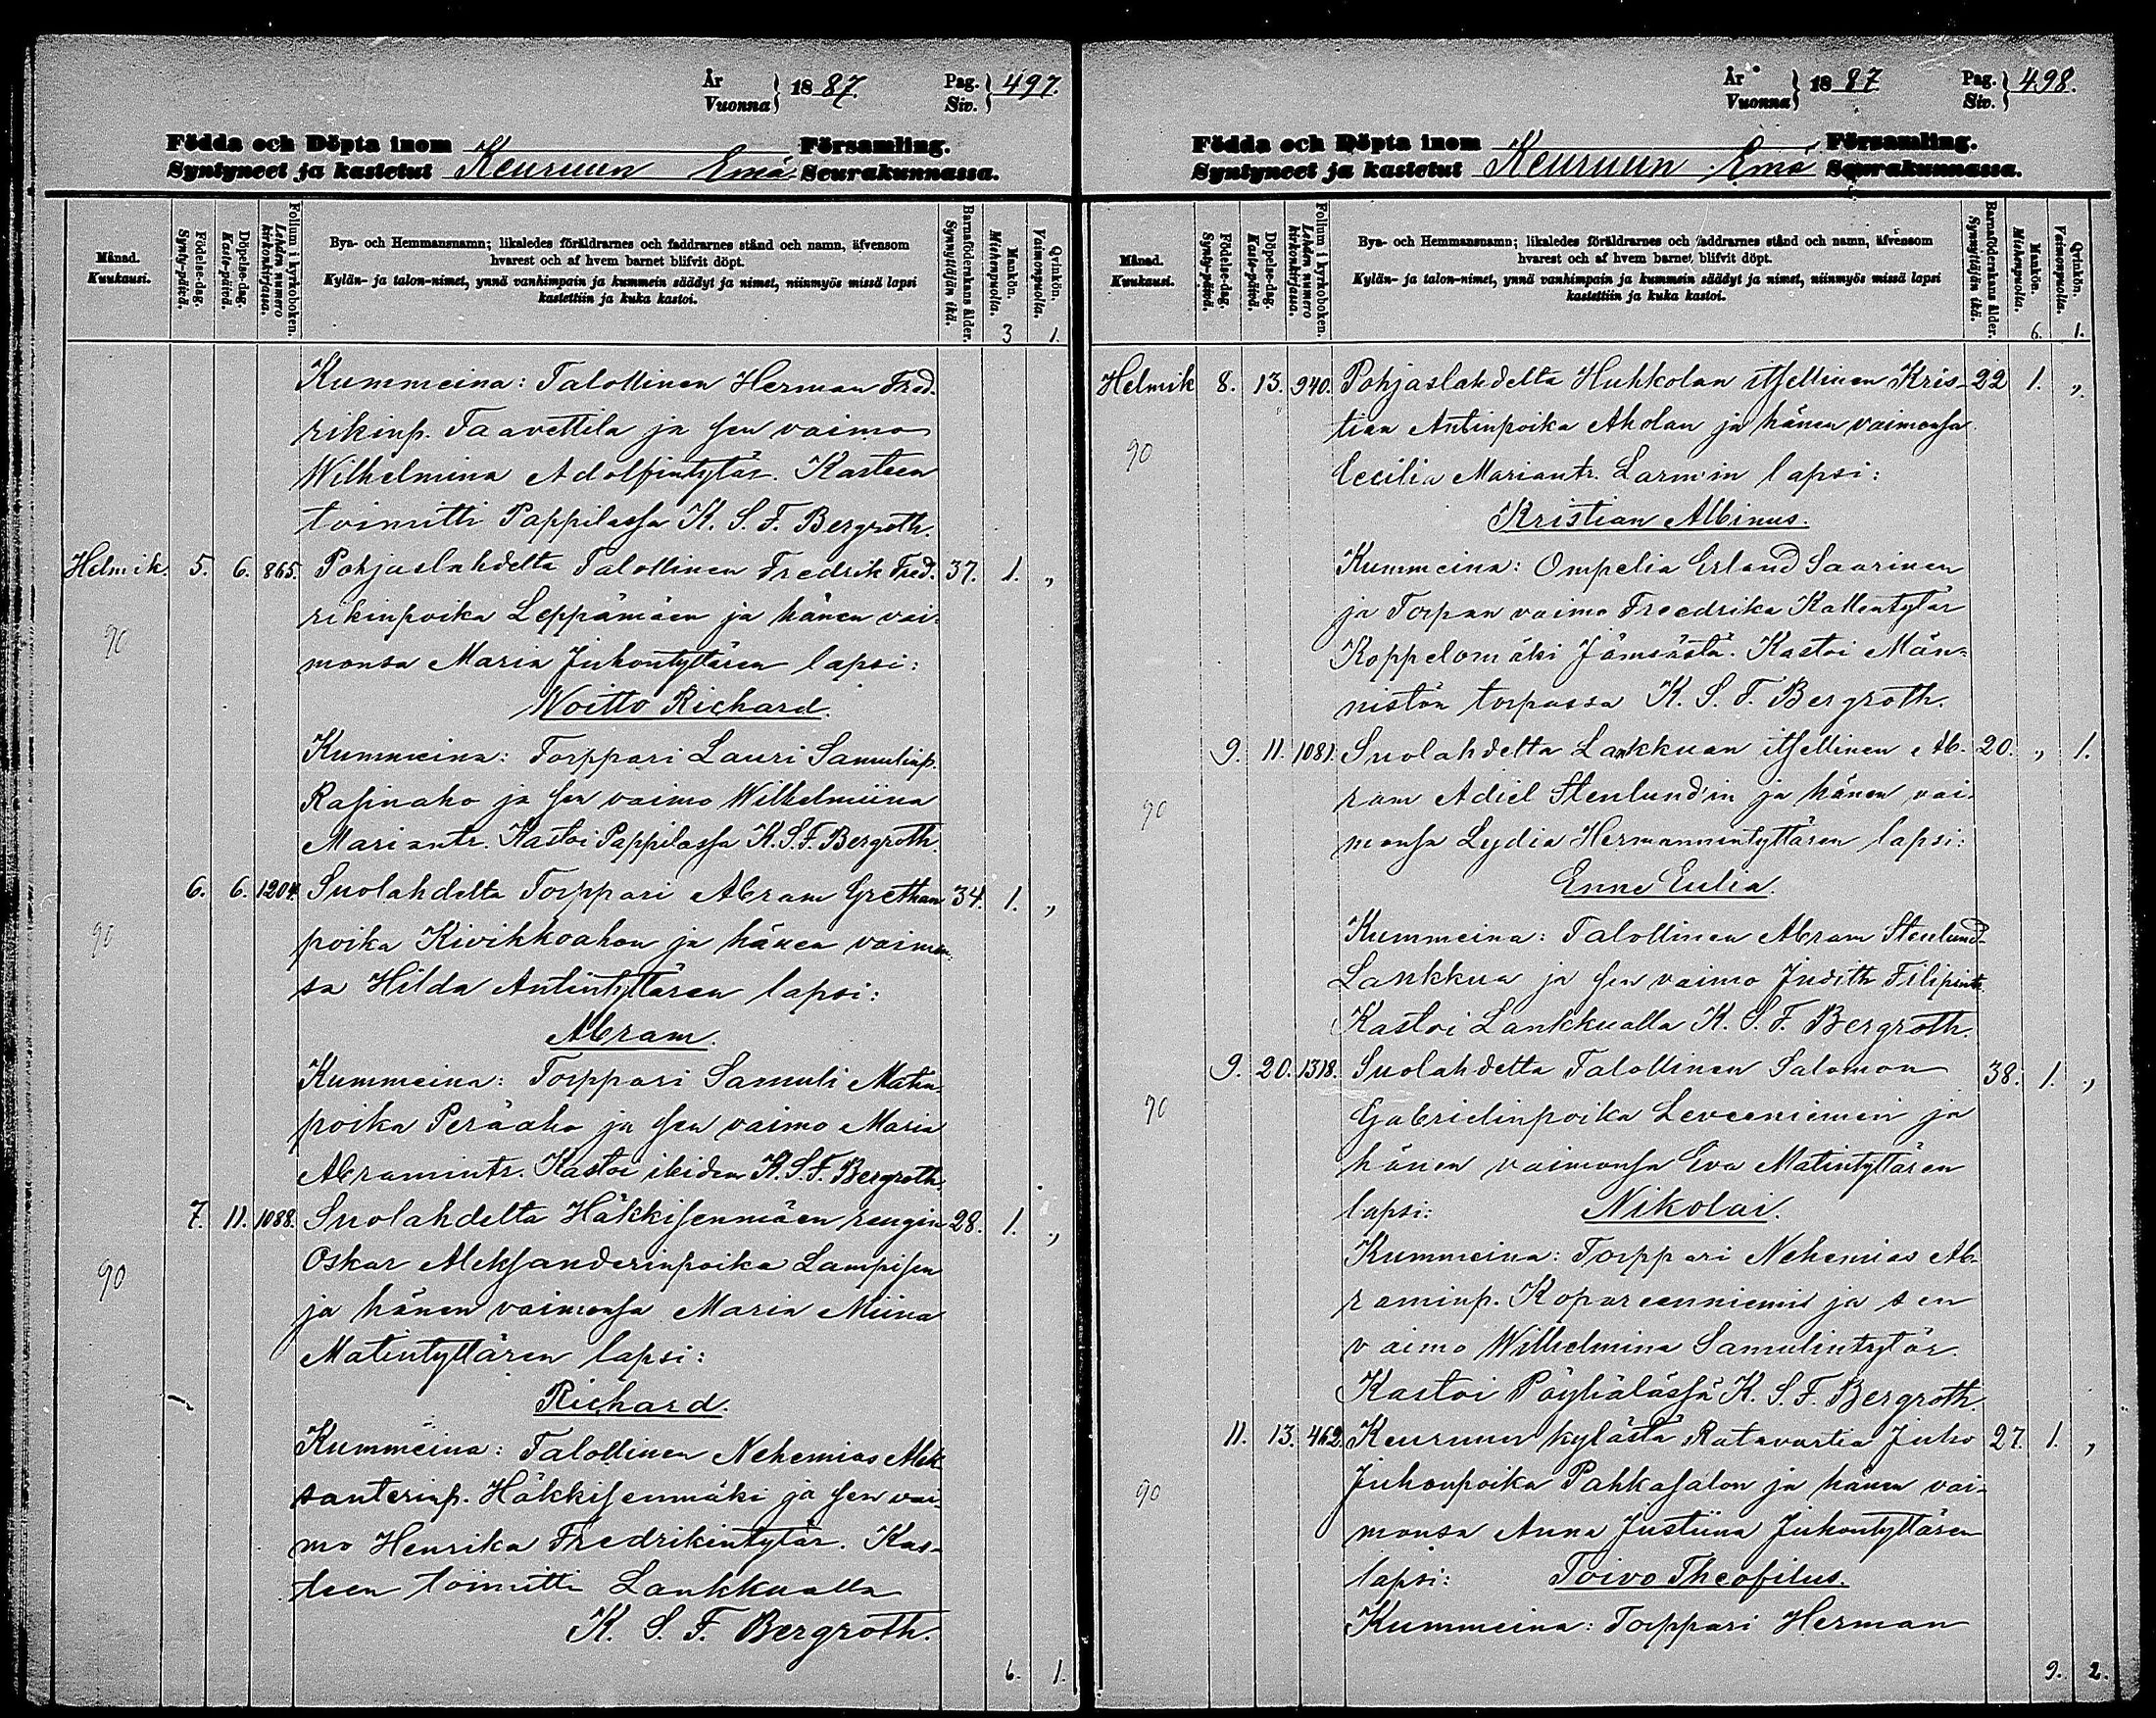 År
Vuonna } 1887. Pag.
Siv. } 497.
Födda och Döpta inom Församling.
Syntyneet ja kastetut Keuruun Emä Seurakunnassa.
Månad.
Kuukausi.
Födelse-dag.
Synty-päivä.
Döpelse-dag.
Kaste-päivä.
Folium i kyrkoboken.
Lehden numero kirkonkirjassa.
Bya- och Hemmansnamn; likaledes föräldrarnes och faddrarnes stånd och namn, äfvensom
hvarest och af hvem barnet blifvit döpt.
Kylän- ja talon-nimet, ynnä vanhimpain ja kummein säädyt ja nimet, niinmyös missä lapsi
kastettiin ja kuka kastoi.
Barnaföderskans ålder.
Synnyttäjän ikä.
Mankön.
Miehenpuolia.
Qvinkön.
Vaimonpuolia.
3 1.
Kummeina: Talollinen Herman Fred-
rikinp. Taavettila ja sen vaimo
Wilhelmina Adolfintytär. Kasteen
toimitti Pappilassa K. S. F. Bergroth.
Helmik. 5. 6. 865. Pohjaslahdelta Talollinen Fredrik Fred- 37. 1. „
rikinpoika Leppämäen ja hänen vai-
90
monsa Maria Juhontyttären lapsi:
Woitto Richard.
Kummeina: Torppari Lauri Samulinp.
Rasinaho ja sen vaimo Wilhelmiina
Mariantr. Kastoi Pappilassa K. S. F. Bergroth.
6. 6. 1204. Suolahdelta Torppari Abram Grethan 34. 1. „
90 poika Kivikkoahon ja hänen vaimon-
sa Hilda Antintyttären lapsi:
Abram.
Kummeina: Torppari Samuli Matin
poika Peräaho ja sen vaimo Maria
Abramintr. Kastoi ibidem K. S. F. Bergroth.
7. 11. 1088. Suolahdelta Häkkisenmäen rengin 28. 1. „
90 Oskar Aleksanderinpoika Lampisen
ja hänen vaimonsa Maria Miina
Matintyttären lapsi:
Richard.
Kummeina: Talollinen Nehemias Alek-
santerinp. Häkkisenmäki ja sen vai-
mo Henrika Fredrikintytär. Kas-
teen toimitti Lankkualla
K. S. F. Bergroth.
6. 1.
År
Vuonna } 1887 Pag.
Siv. } 498.
Födda och Döpta inom Församling.
Syntyneet ja kastetut Keuruun Emä Seurakunnassa.
Månad.
Kuukausi.
Födelse-dag.
Synty-päivä.
Döpelse-dag.
Kaste-päivä.
Folium i kyrkoboken.
Lehden numero kirkonkirjassa.
Bya- och Hemmansnamn; likaledes föräldrarnes och faddrarnes stånd och namn, äfvensom
hvarest och af hvem barnet blifvit döpt.
Kylän- ja talon-nimet, ynnä vanhimpain ja kummein säädyt ja nimet, niinmyös missä lapsi
kastettiin ja kuka kastoi.
Barnaföderskans ålder.
Synnyttäjän ikä.
Mankön.
Miehenpuolia.
Qvinkön.
Vaimonpuolia.
6. 1.
Helmik 8. 13. 940. Pohjaslahdelta Huhkolan itsellinen Kris- 22 1. „
tian Antinpoika Aholan ja hänen vaimonsa
90
Cecilia Mariantr. Larm'in lapsi:
Kristian Albinus.
Kummeina: Ompelia Erland Saarinen
ja Torpan vaimo Freedrika Kallentytär
Koppelomäki Jämsästä. Kastoi Män-
nistön torpassa K. S. F. Bergroth.
9. 11. 1081. Suolahdelta Lankkuan itsellinen Ab- 20. „ 1.
90 ram Adiel Stenlund'in ja hänen vai-
monsa Lydia Hermannintyttären lapsi:
Enne Eulia.
Kummeina: Talollinen Abram Stenlund-
Lankkua ja sen vaimo Judith Filipintr.
Kastoi Lankkualla K. S. F. Bergroth.
9. 20. 1318. Suolahdelta Talollinen Salomon 38. 1. „
90 Gabrielinpoika Leveeniemin ja
hänen vaimonsa Eva Matintyttären
lapsi: Nikolai.
Kummeina: Torppari Nehemias Ab-
raminp. Kopareenniemi ja sen
vaimo Wilhelmina Samulintytär.
Kastoi Pöyhölässä K. S. F. Bergroth.
11. 13. 462. Keuruun kylästä Ratavartia Juho 27. 1. „
90 Juhonpoika Pahkasalon ja hänen vai-
monsa Anna Justiina Juhontyttären
lapsi: Toivo Theofilus.
Kummeina: Torppari Herman
9. 2.